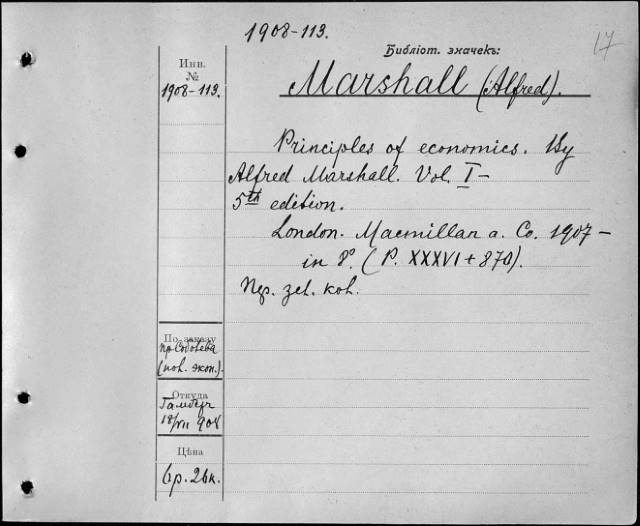 1908-113.
17
Библіот. значекъ:
Marshall (Alfred).
Инв.
№
1908-113.
Principles of economics. By
Alfred Marshall. Vol. I-
5th edition.
London. Macmillan a. Co. 1907 -
in 8°. (P. XXXVI + 870).
По заказу
пр. Соболева
(пол. экон.).
Откуда
18/VII 908
Цѣна
6р. 26к.